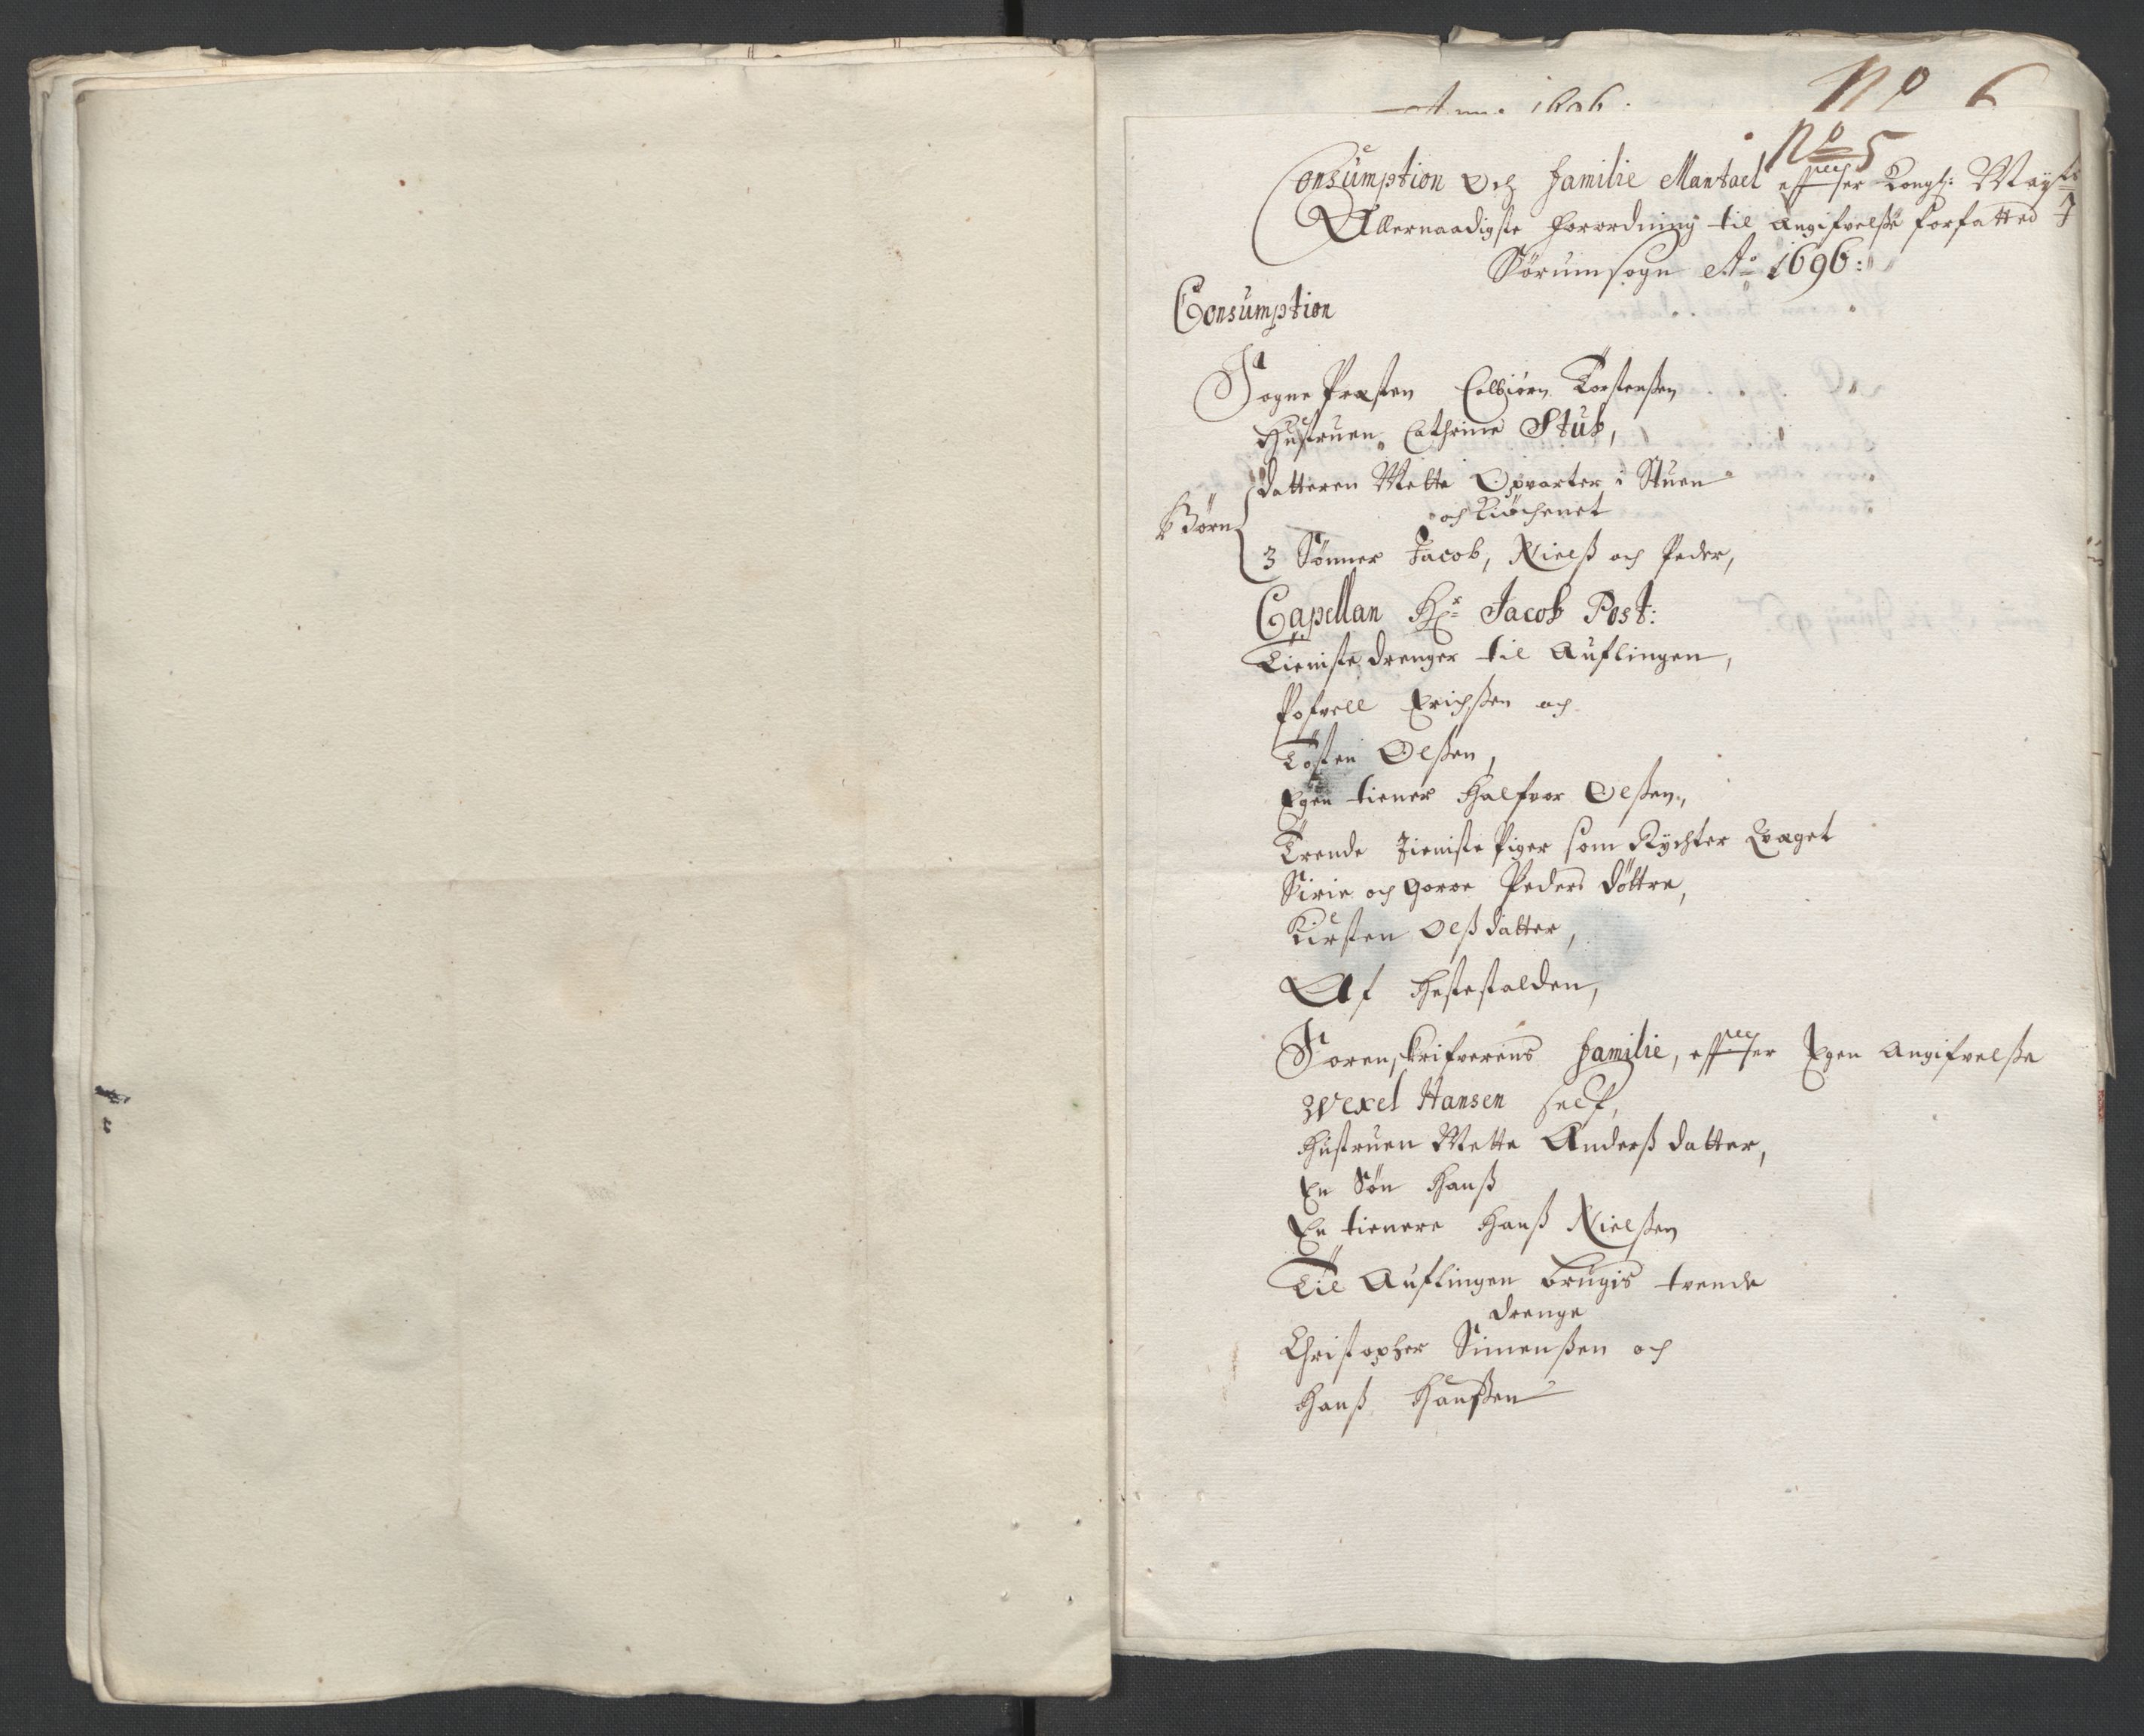 Anno 1696.
No 6
No 5
Consumption och familie Mantael effter Kongl: Mayts
Allernaadigste forordning til Angifvelße forfatted I
Sørumsogn Ao 1696:
Consumption
Sogne Præsten Colbiørn Torstenßen
Hustruen Cathrine Stub,
Børn
Datteren Mette Opvarter i Stuen
och Kiøchenet
3 Sønner Jacob, Nielß och Peder,
Capellan Hr Jacob Post:
Tieniste drenger til Auflingen,
Pofvell Erichßen och
Tosten Olßen,
Egen tiener Halfvor Olßen,
Trende Tieniste Piger som Rychter Qvæget
Sirie och Goroe Peders døttre,
Kirsten Olßdatter,
Af Hestestalden,
Sorenskrifverens familie, effter Egen Angifvelße
Wexel Hansen self,
Hustruen Mette Anderß datter,
En Søn Hanß
En tienere Hanß Nielßen
Til Auflingen brugis tvende
drenge
Christopher Simenßen och
Hanß Hanßen